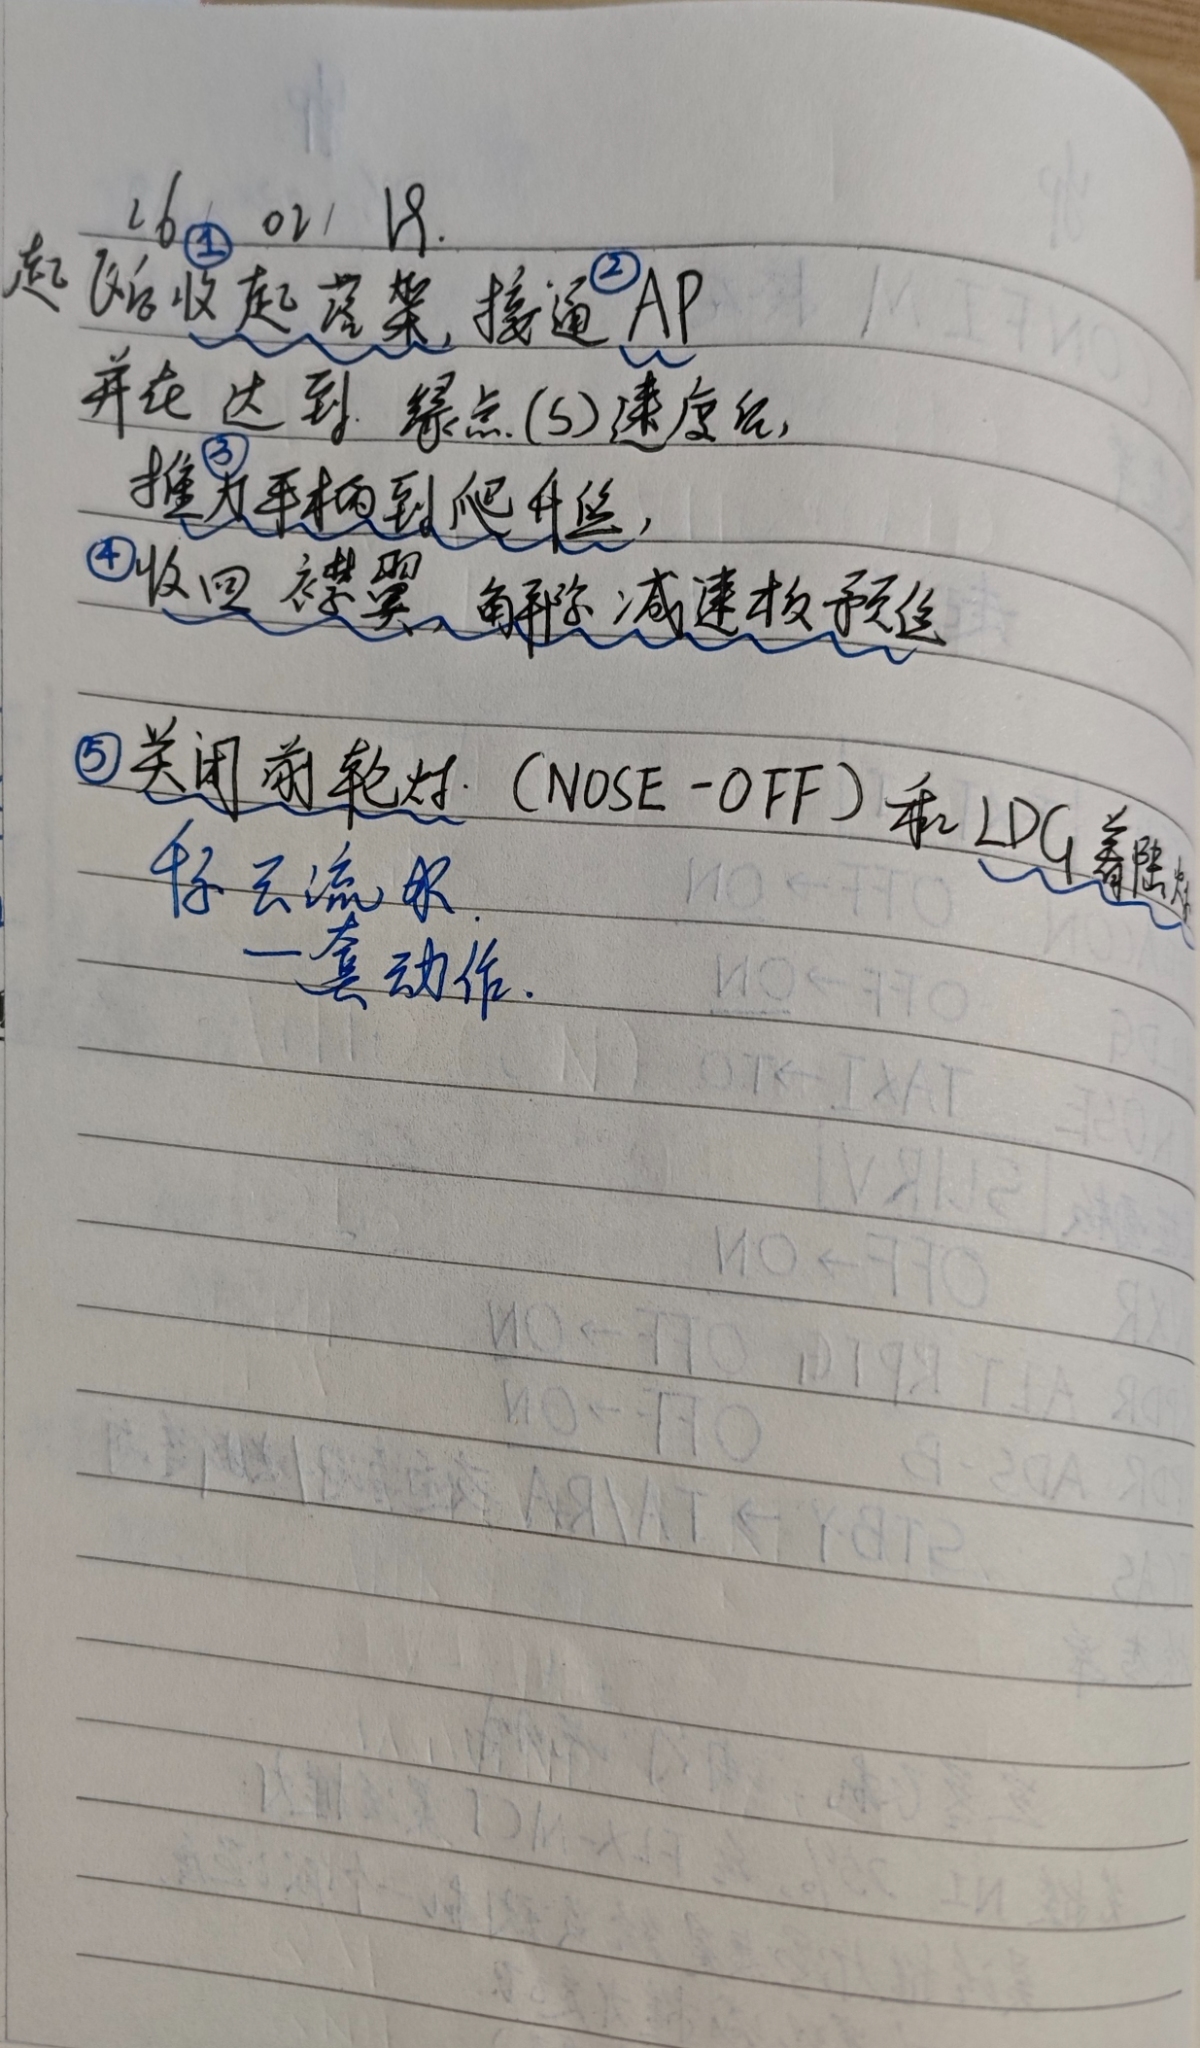 26 02/ 19.
起飞后①收起落架,接通②AP
并在达到绿点(S)速度后,
③推力手柄到爬升位,
④收回襟翼,解除减速板预位
⑤关闭前轮灯.(NOSE-OFF)和LDG着陆灯
行云流水.
一套动作.